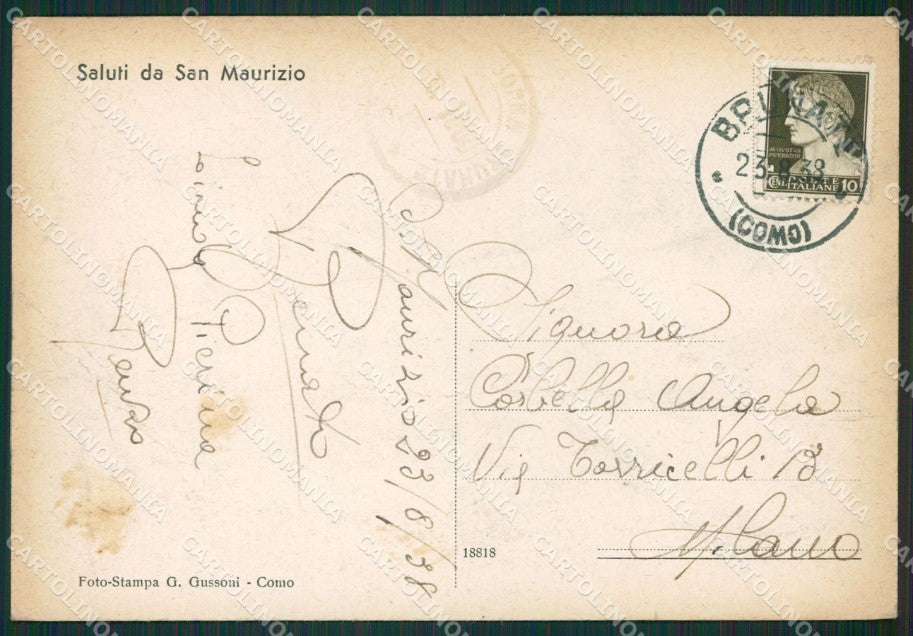 Saluti da San Maurizio
BRUNATE
23.8.38
(COMO)
POSTE
CENT. ITALIANE 10
S. Maurizio 23/8/38
Renato
Pierina
Renzo
Signora
Corbella Angela
Via Torricelli 13
Milano
18818
Foto-Stampa G. Gussoni - Como
CARTOLINOMANIA